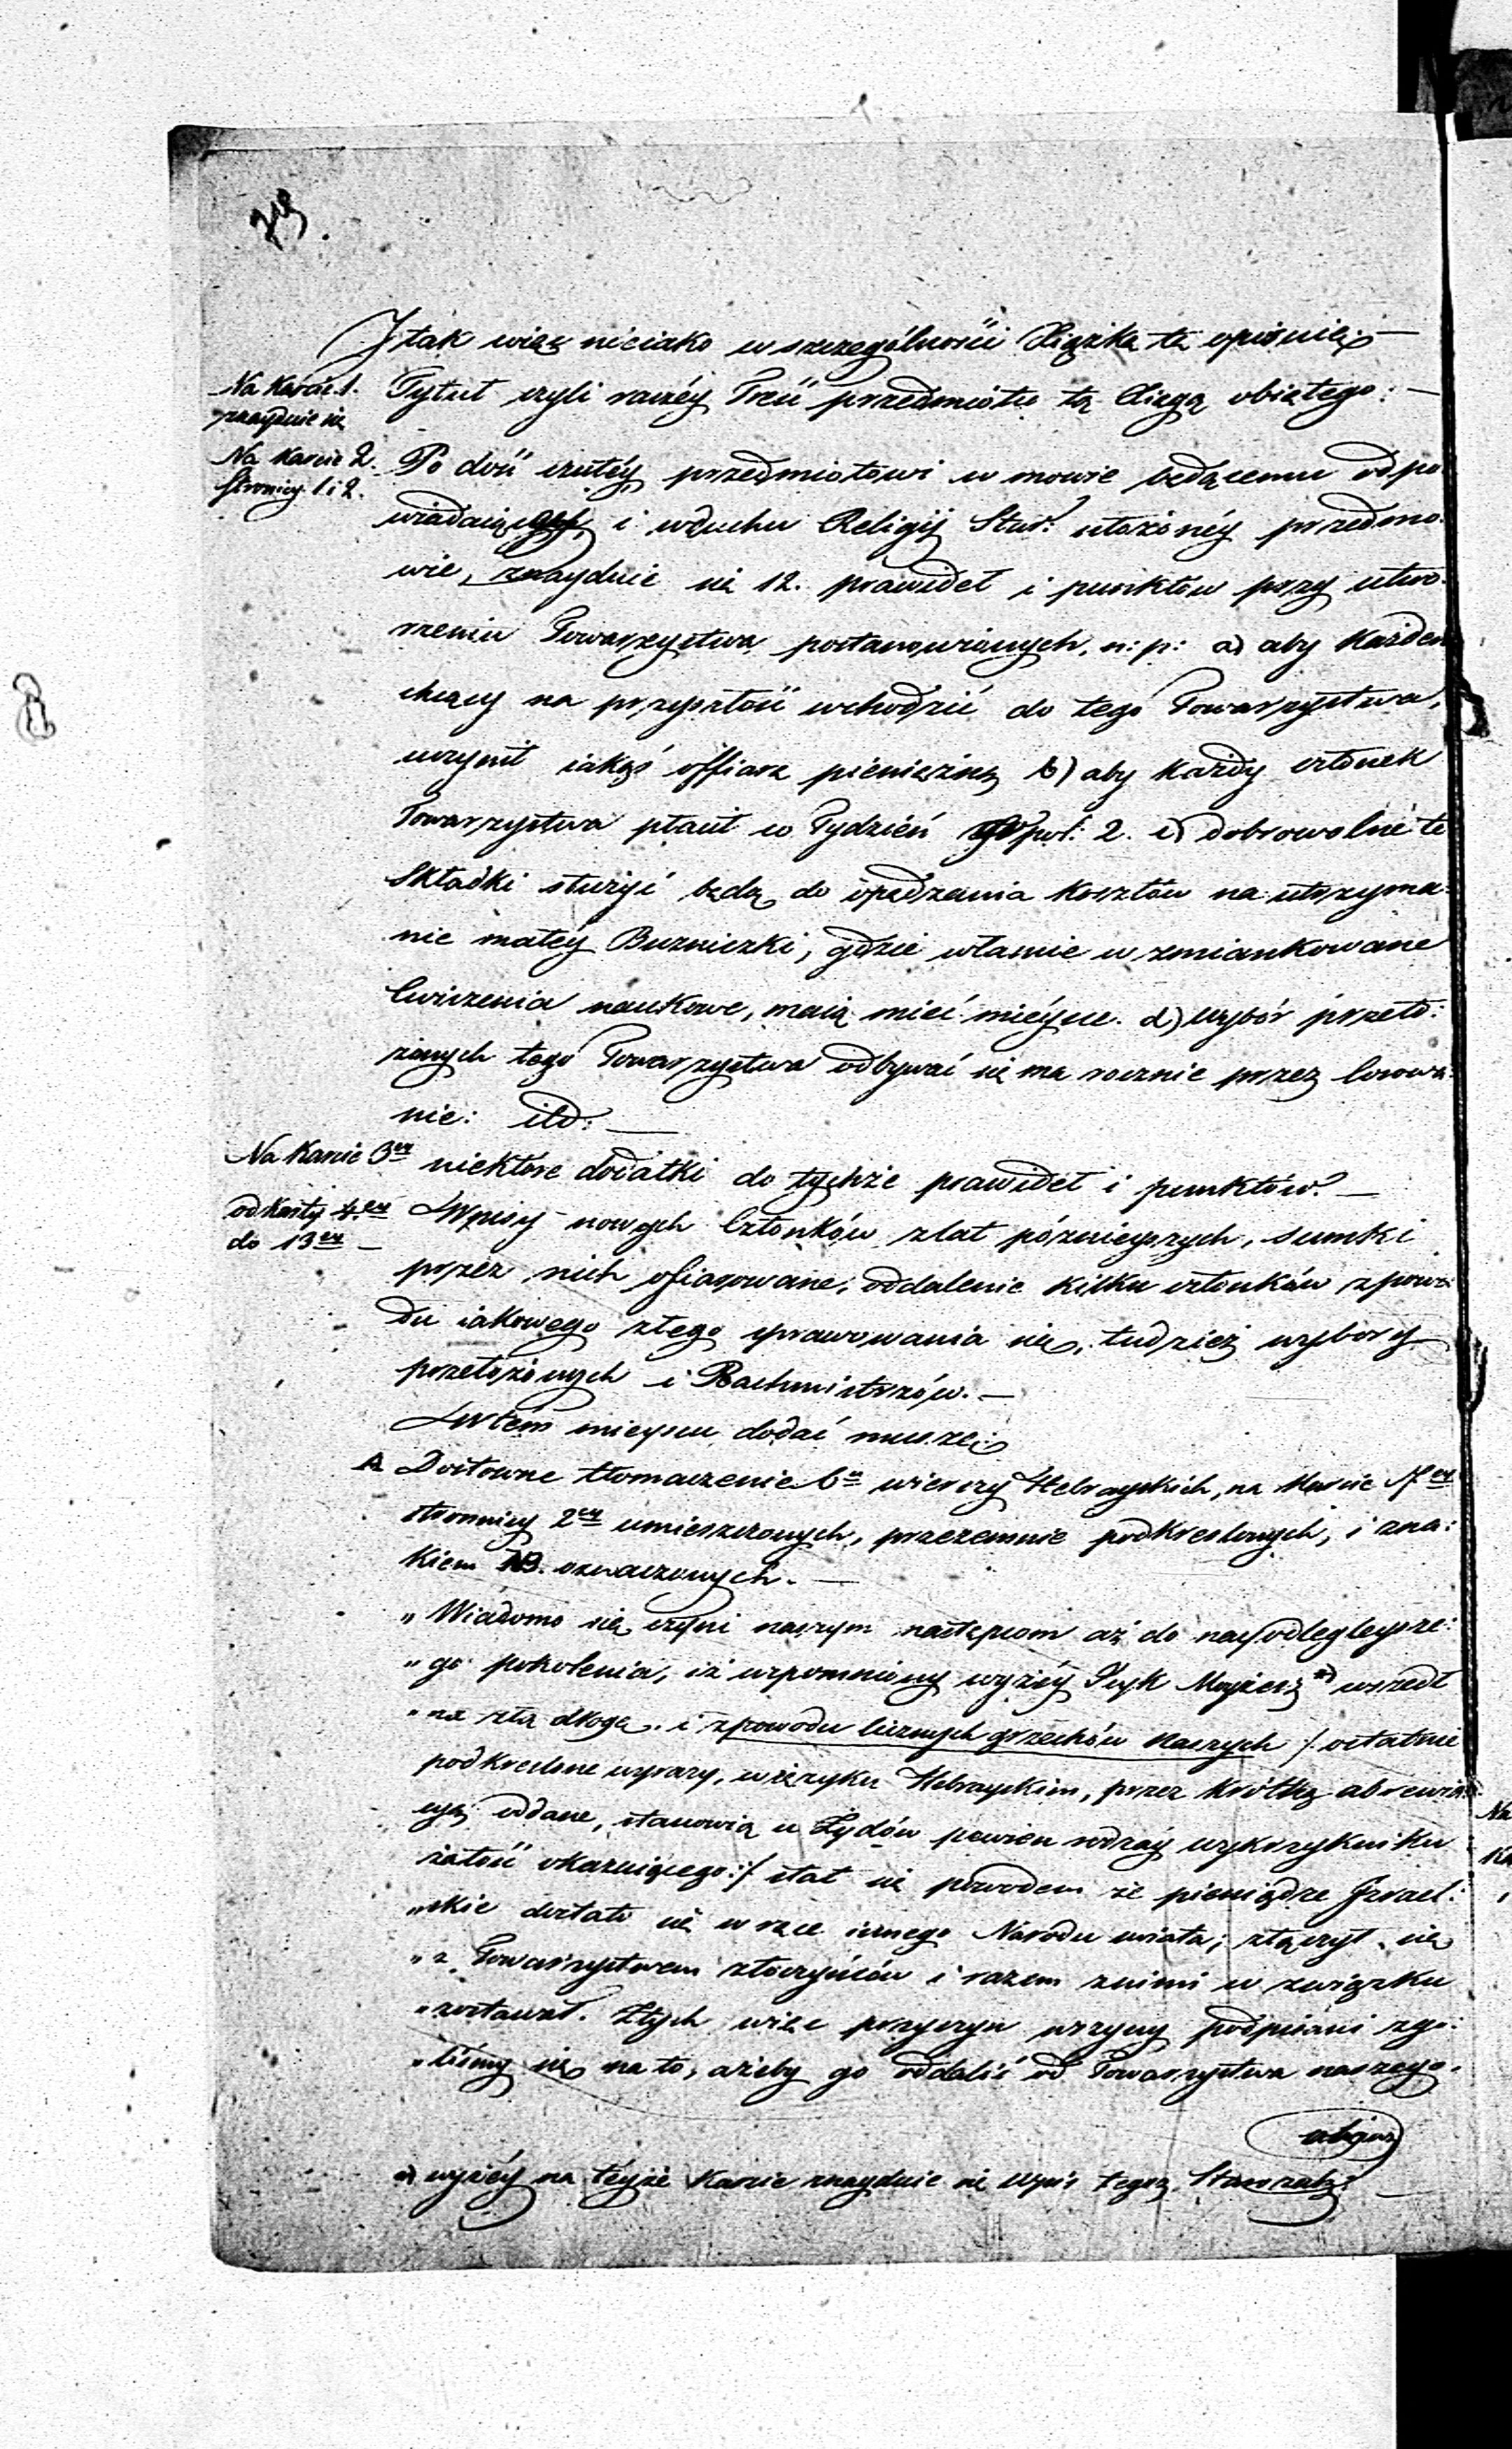 I tak więc nieiako w szczególności Xiążkę tę opisuię: —
Na Karcie 1. znayduie się
Tytuł czyli raczéy Treść przedmiotu tą Xięgą obiętego: —
Na Karcie 2. Stronicy 1 i 2.
Po dość czułéy przedmiotowi w mowie będącemu odpo-
wiadaiącéy, i w duchu Religij Star: ułożonéy przedmo-
wie, znayduie się 12. prawideł i punktów przy utwo-
rzeniu Towarzystwa postanowionych, n: p: a) aby Każden
chcący na przyszłość wchodzić do tego Towarzystwa,
uczynił iakąś offiarę pieniężną b) aby Każdy członek
Towarzystwa płacił co Tydzień 2. c) dobrowolne te
Składki służyć będą do opędzenia Kosztów na utrzyma-
nie małéy Buzniczki, gdzie właśnie wzmiankowane
ćwiczenia naukowe, maią mieć mieysce. d) wybór przeło:
żonych tego Towarzystwa odbywać się ma rocznie przez losowa-
nie: itd: —
Na Karcie 3ey niektóre dodatki do tychże prawideł i punktów. —
od Karty 4ey do 13ey —
Wpisy nowych Członków z lat póznieyszych, sumki
przez nich ofiarowane, oddalenie kilku członków z powo-
du iakowego złego sprawowania się, tudzież wybory
przełożonych i Rachmistrzów. —
W tém mieyscu dodać muszę:
A Dosłowne tłomaczenie 6u wierszy Hebrayskich, na Karcie 7ey
stronnicy 2ey umieszczonych, przezemnie podkreślonych, i zna:
kiem NB. oznaczonych. —
„ Wiadomo się czyni naszym następcom aż do nayodlegleysze:
„ go pokolenia, iż wspomniony wyżéy Muyżesz a) wszedł
„ na złą drogę. i z powodu licznych grzechów naszych /: ostatnie
podkreślone wyrazy, w ięzyku Hebrayskim, przez krótką abrewia-
cyą oddane, stanowią u Żydów pewien rodzay wykrzykniku
żałość okazuiącego :/ stał się powodem że pieniądze Izrael:
„ skie dostało się w ręce innego Narodu świata; złączył się
„ z Towarzystwem złoczyńców i razem z nimi w związku
„ zostawał. Z tych więc przyczyn wszyscy podpisani zgo:
„ liśmy się na to, ażeby go oddalić od Towarzystwa naszego.
a) wyżéy na téyże Karcie znayduie się Wpis tegoż